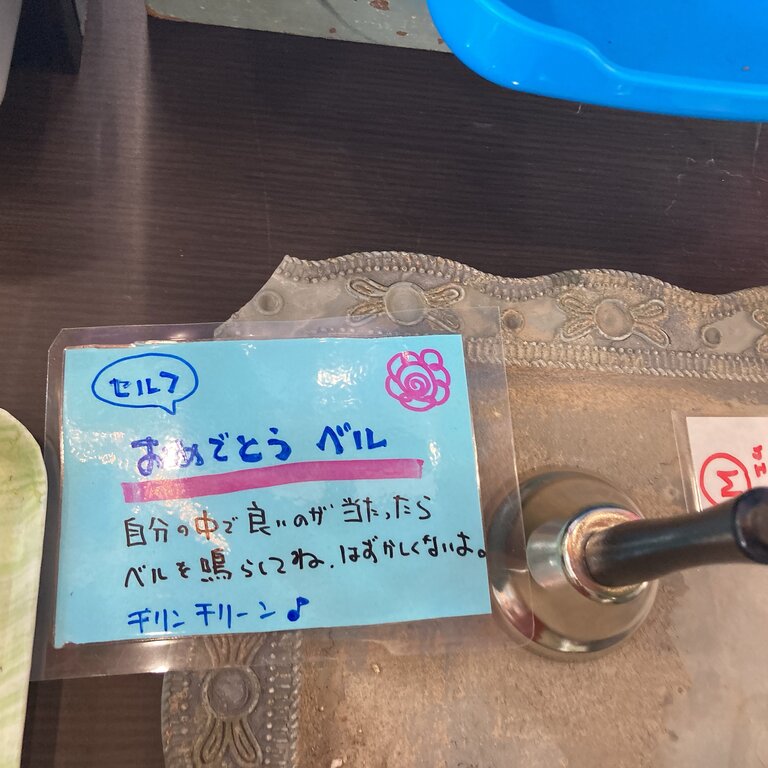 セルフ
おめでとう ベル
自分の中で良いのが当たったら
ベルを鳴らしてね、はずかしくないよ。
チリンチリーン♪
M